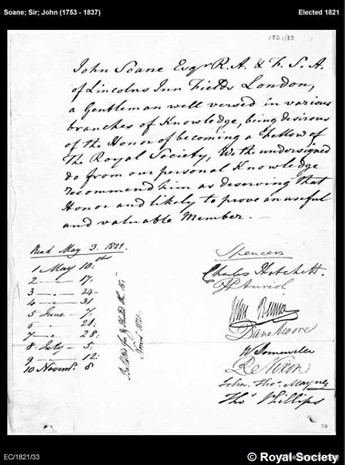 Soane; Sir; John (1753 - 1837)
Elected 1821
1821/33
John Soane Esqr. R.A. & F.S.A.
of Lincolns Inn Fields London,
a Gentleman well versed in various
branches of Knowledge, being desirous
of the Honor of becoming a Fellow of
the Royal Society, We the undersigned
do from our personal Knowledge
recommend him as deserving that
Honor and likely to prove an useful
and valuable Member.
Read May 3. 1821.
1 May 10th
2 — 17.
3 — 24.
4 — 31
5 June 7.
6 — 21.
7 — 28.
8 July 5.
9 — 12.
10 Novemr. 8
Balloted for & Elected the 15.
Novr. 1821.
Spencer
Chals Hatchett.
P Auriol
John Rennie
Dane Moore
W Somerville
R Nixon
John Thos. Mayne
Thos. Phillips
EC/1821/33
© Royal Society